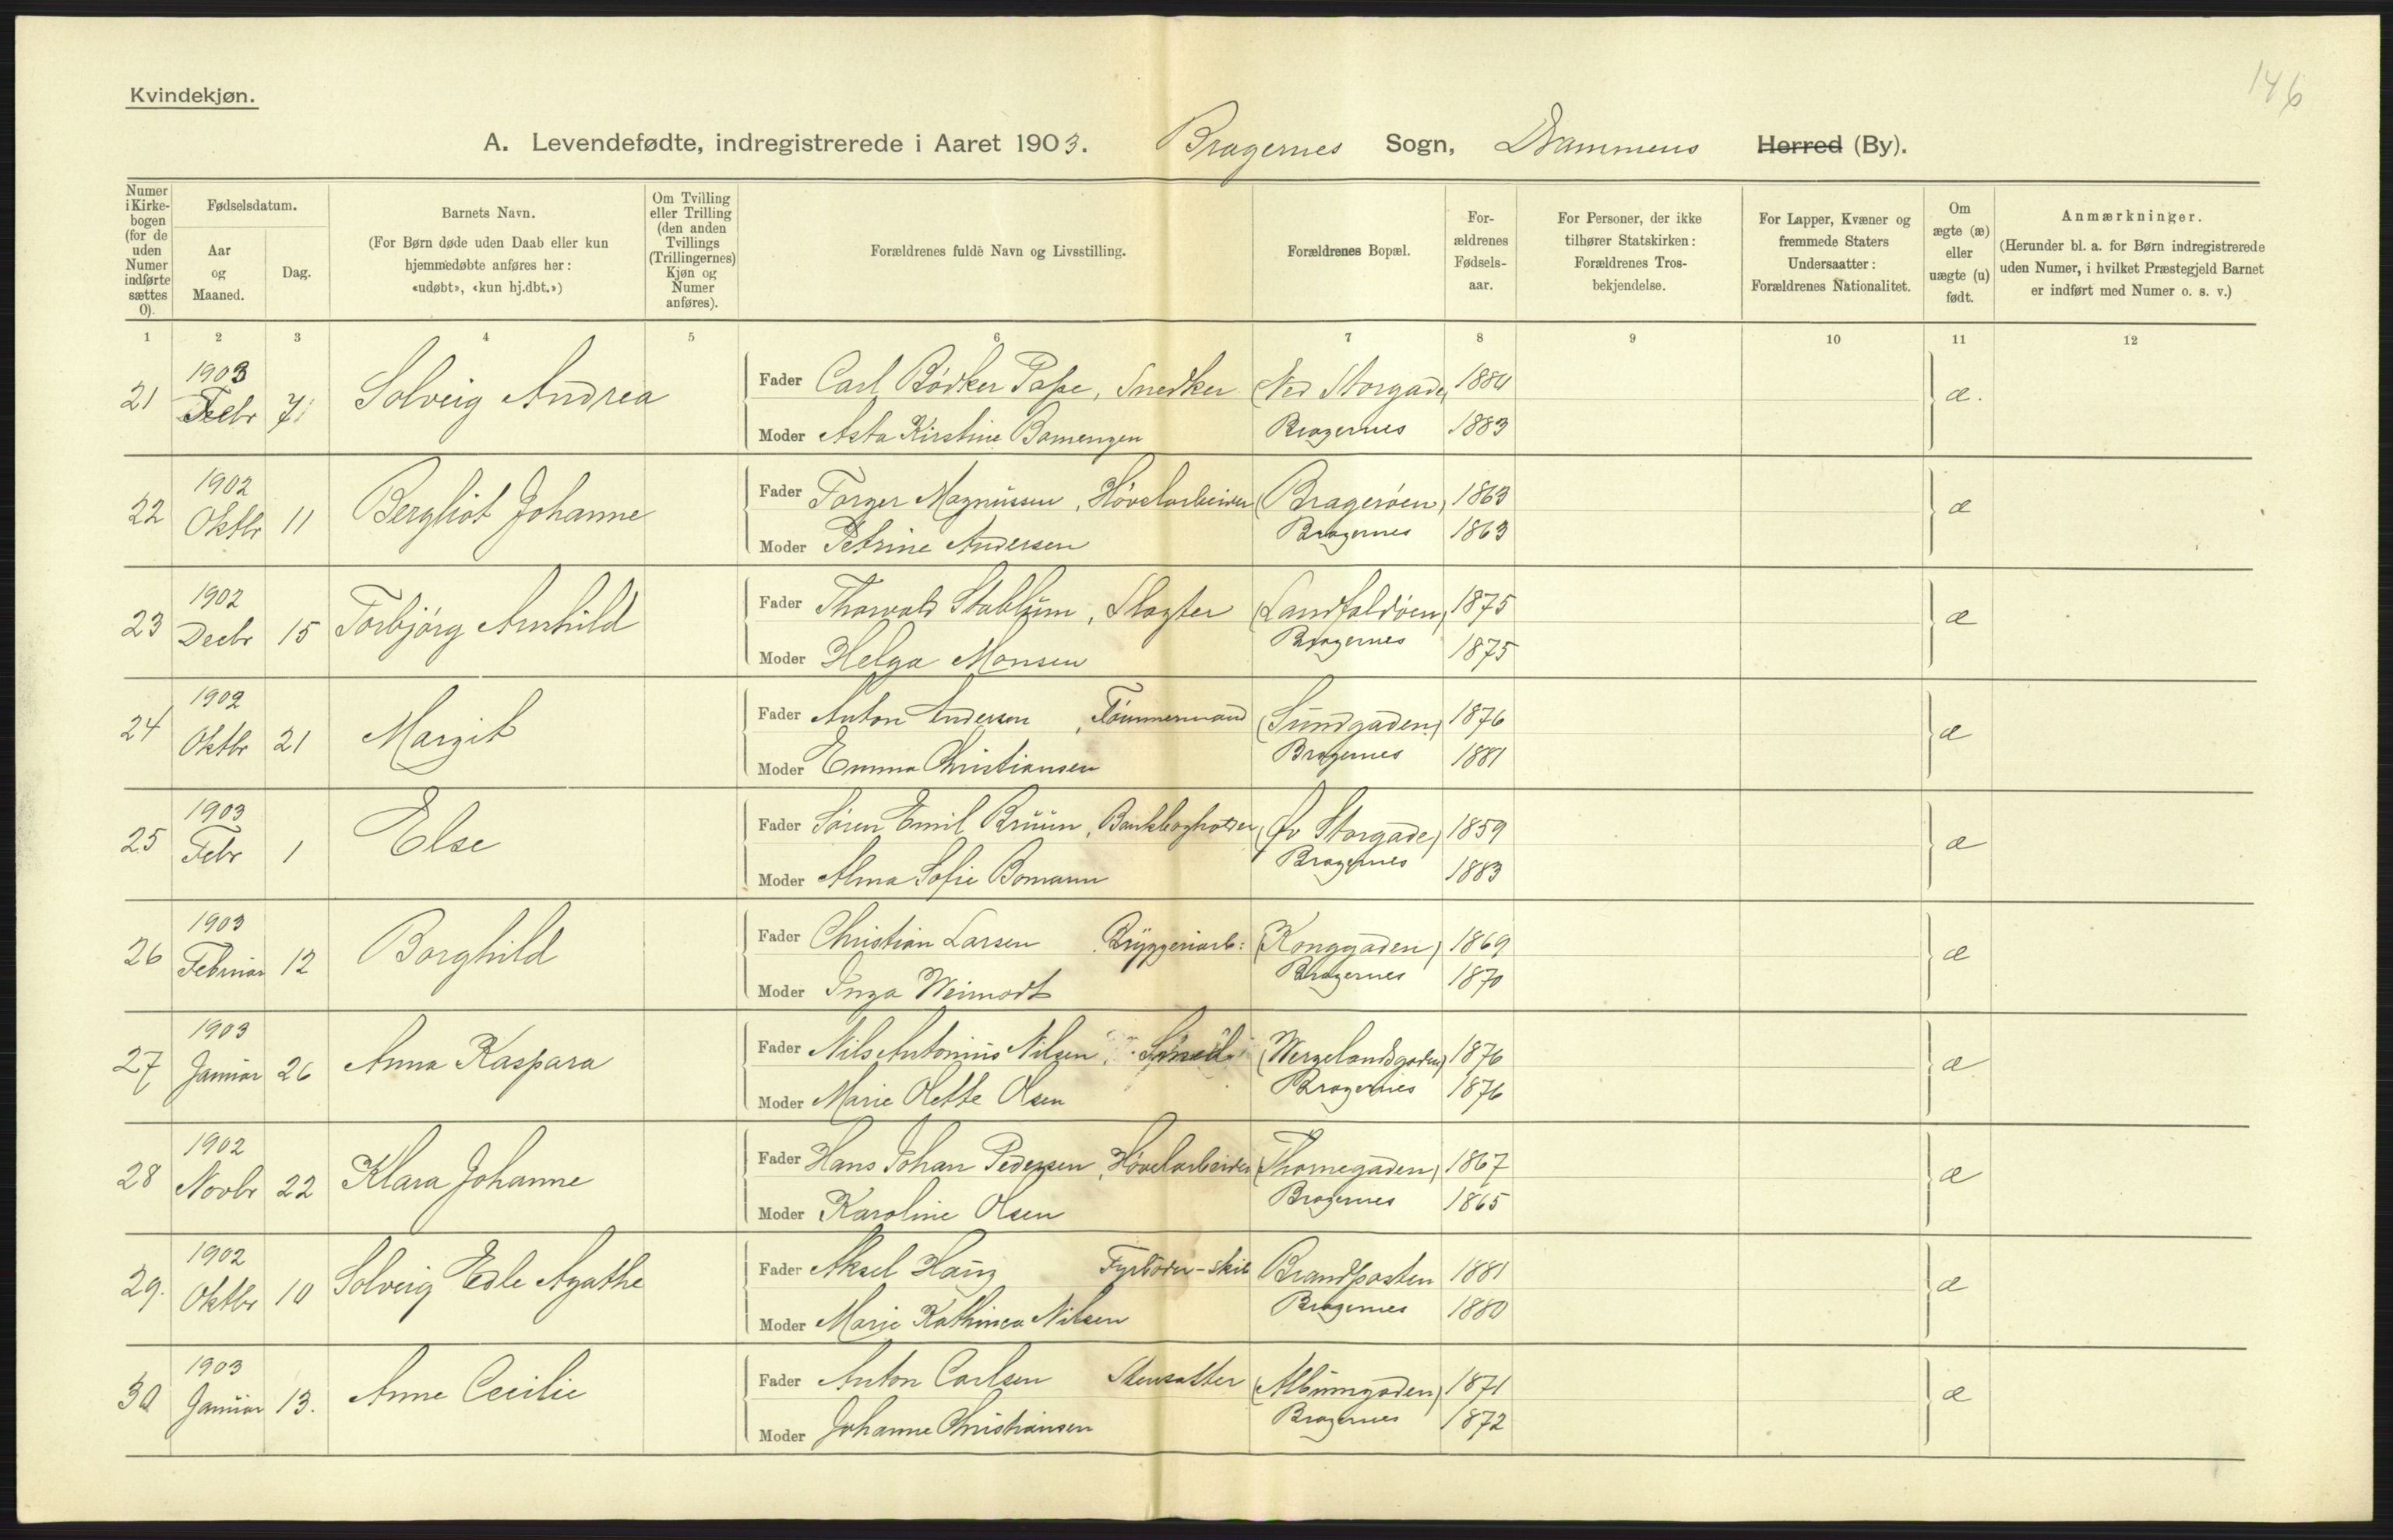 146
Kvindekjøn.
A. Levendefødte, indregistrerede i Aaret 1903. Bragernes Sogn, Drammens Herred (By).
Numer i Kirkebogen (for de uden Numer indførte sættes 0).
Fødselsdatum.
Aar og Maaned.
Dag.
Barnets Navn.
(For Børn døde uden Daab eller kun hjemmedøbte anføres her: «udøbt», «kun hj.dbt.»)
Om Tvilling eller Trilling (den anden Tvillings (Trillingernes) Kjøn og Numer anføres).
Forældrenes fulde Navn og Livsstilling.
Forældrenes Bopæl.
Forældrenes Fødselsaar.
For Personer, der ikke tilhører Statskirken: Forældrenes Trosbekjendelse.
For Lapper, Kvæner og fremmede Staters Undersaatter: Forældrenes Nationalitet.
Om ægte (æ) eller uægte (u) født.
Anmærkninger.
(Herunder bl. a. for Børn indregistrerede uden Numer, i hvilket Præstegjeld Barnet er indført med Numer o. s. v.)
1 2 3 4 5 6 7 8 9 10 11 12
1903
21 Febr 7 Solveig Andrea Fader Carl Bødker Pape, Snedker (Ned Storgade) 1884 æ.
Moder Asta Kirstine Bamengen Bragernes 1883
1902
22 Oktbr 11 Bergliot Johanne Fader Torger Magnussen, Høvelarbeider (Bragerøen) 1863 æ
Moder Petrine Andersen Bragernes 1863
1902
23 Decbr 15 Torbjørg Arnhild Fader Thorvald Stablum, Slagter (Landfaldøen) 1875 æ
Moder Helga Monsen Bragernes 1875
1902
24 Oktbr 21 Margit Fader Anton Andersen, Tømmermand (Sundgaden) 1876 æ
Moder Emma Christiansen Bragernes 1881
1903
25 Febr 1 Else Fader Søren Emil Bruun, Bankbogholder (Øv Storgade) 1859 æ
Moder Alma Sofie Bomann Bragernes 1883
1903
26 Februar 12 Borghild Fader Christian Larsen Bryggeriarb: (Konggaden) 1869 æ
Moder Inga Weimodt Bragernes 1870
1903
27 Januar 26 Anna Kaspara Fader Nils Antonius Nilsen, Smed (Wergelandsgaden) 1876 æ
Moder Marie Olette Olsen Bragernes 1876
1902
28 Novbr 22 Klara Johanne Fader Hans Johan Pedersen, Høvelarbeider (Thornegaden) 1867 æ
Moder Karoline Olsen Bragernes 1865
1902
29. Oktbr 10 Solveig Edle Agathe Fader Aksel Haug Fyrbøder-skib Brandposten 1881 æ
Moder Marie Kathinca Nilsen Bragernes 1880
1903
30 Januar 13. Anne Cecilie Fader Anton Carlsen Stensætter (Albumgaden) 1871 æ
Moder Johanne Christiansen Bragernes 1872